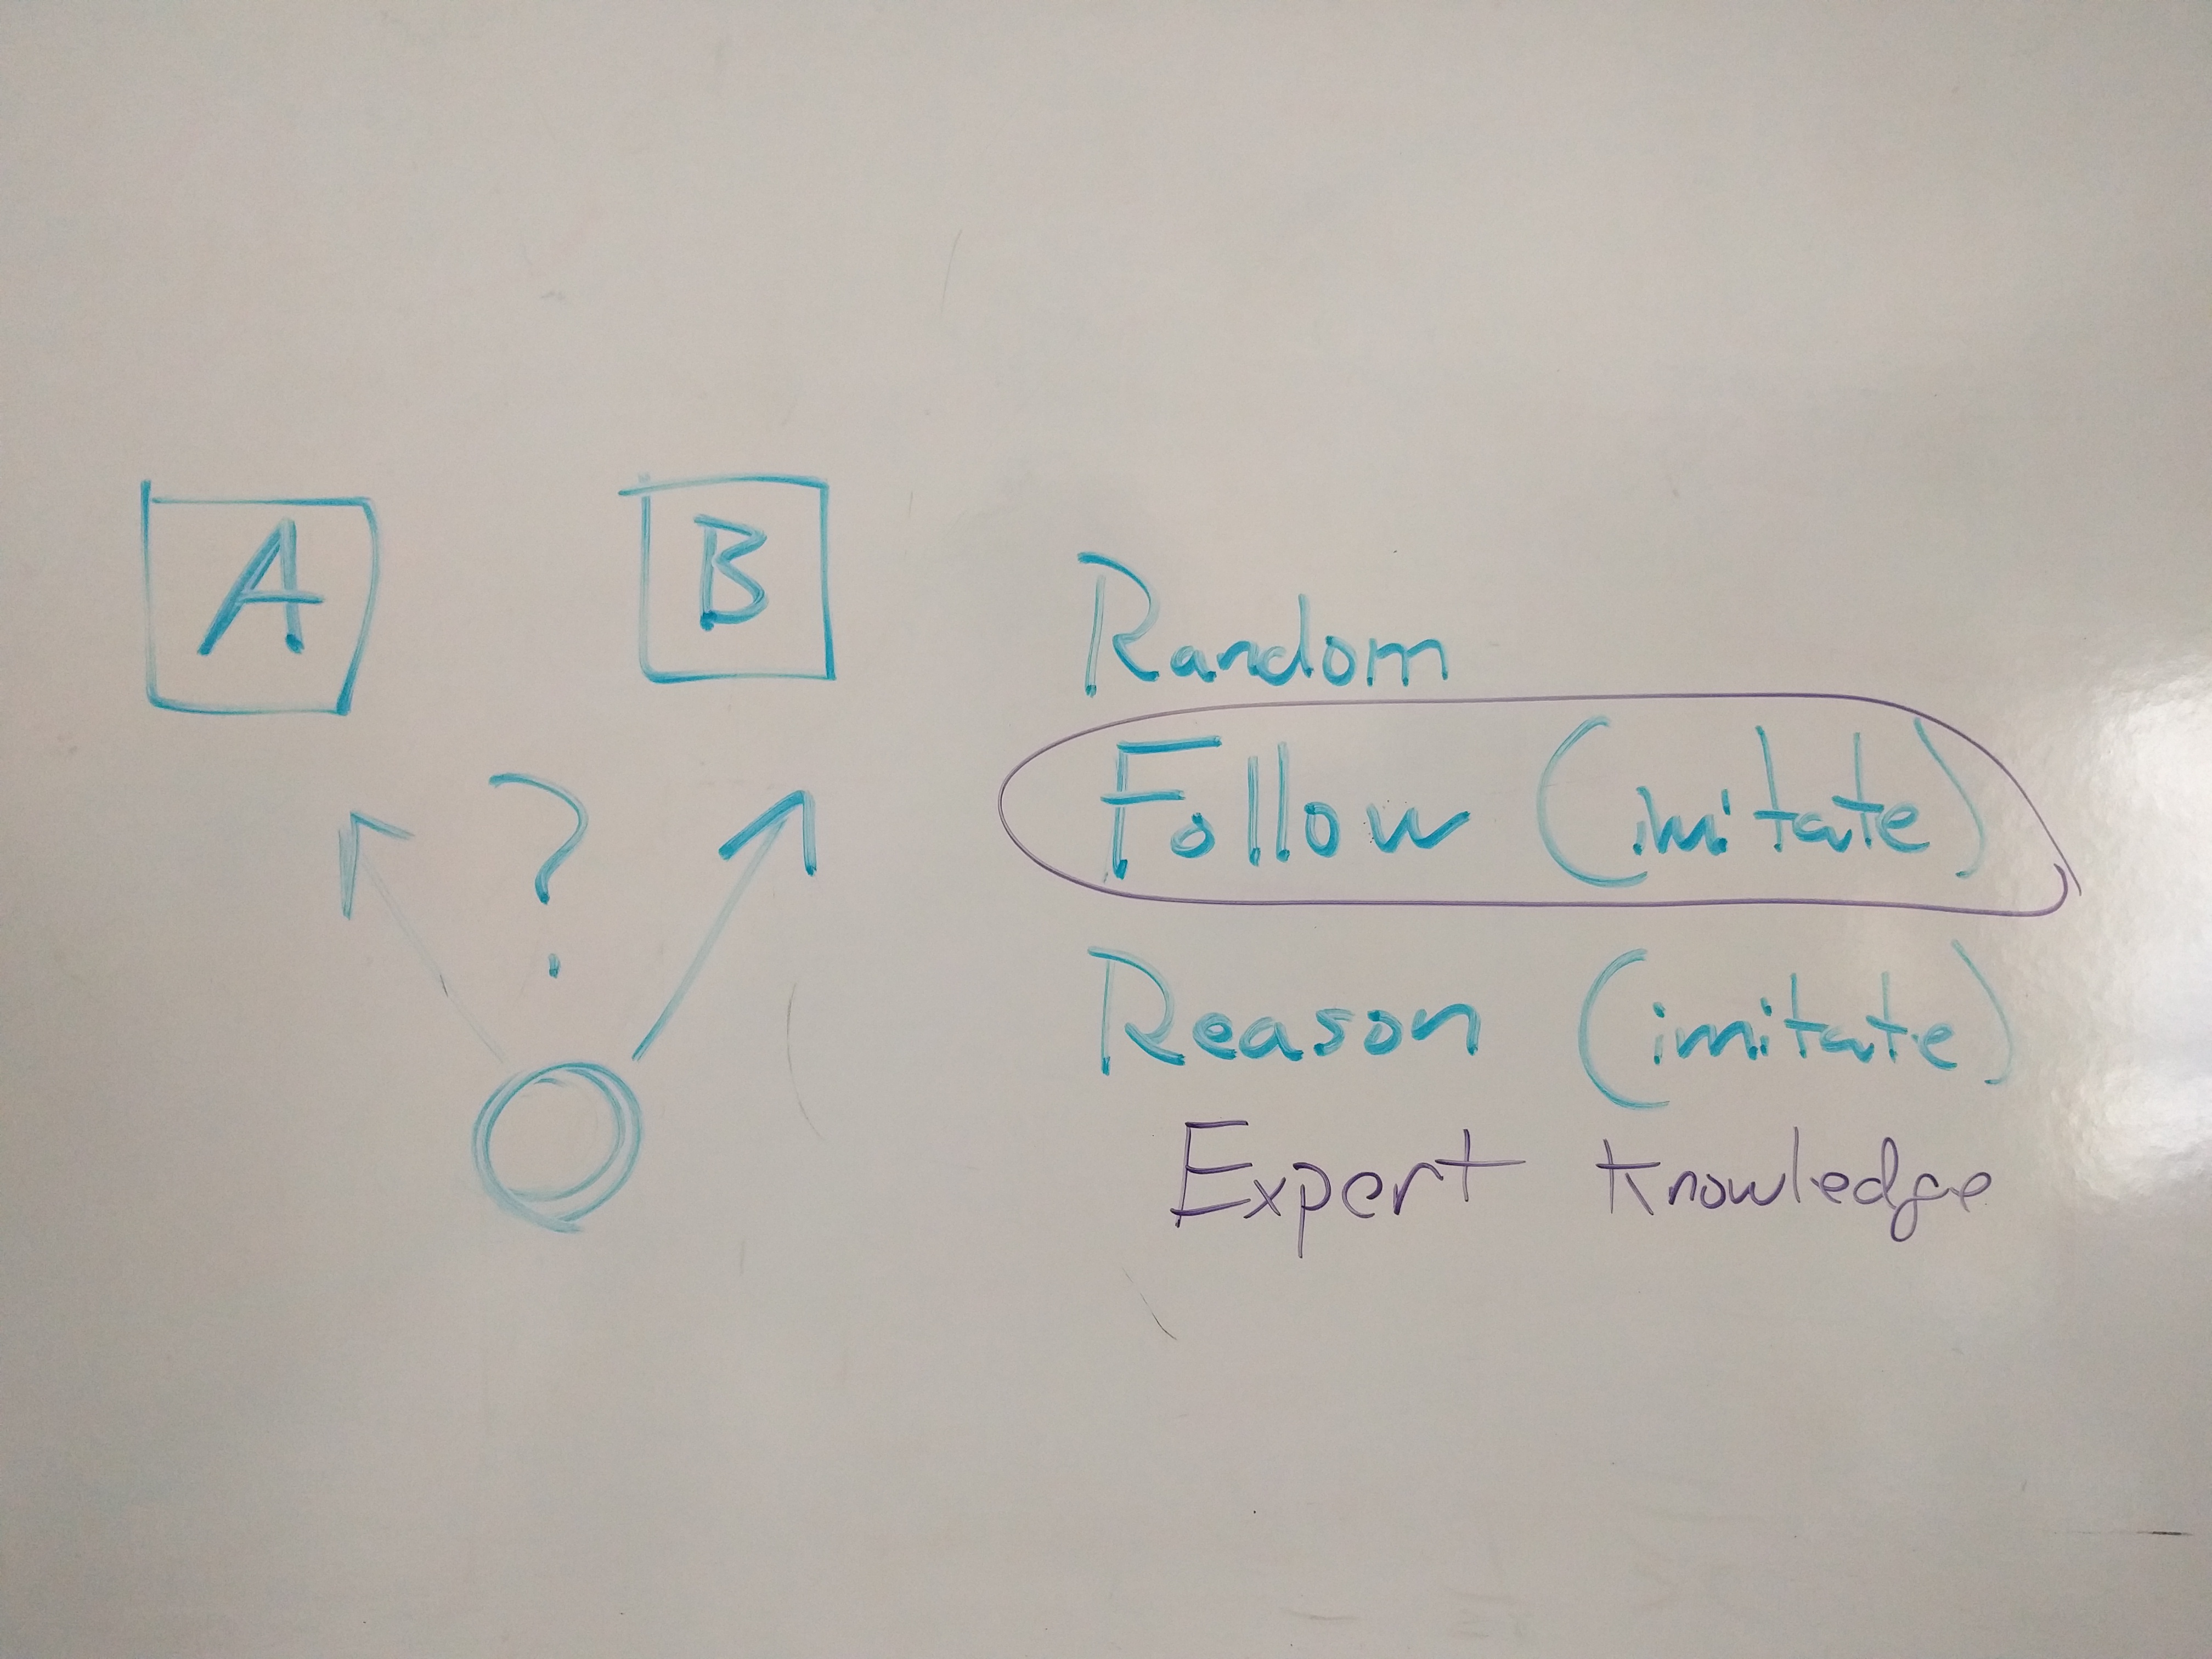 A
B
?
Random
Follow (imitate)
Reason (imitate)
Expert Knowledge